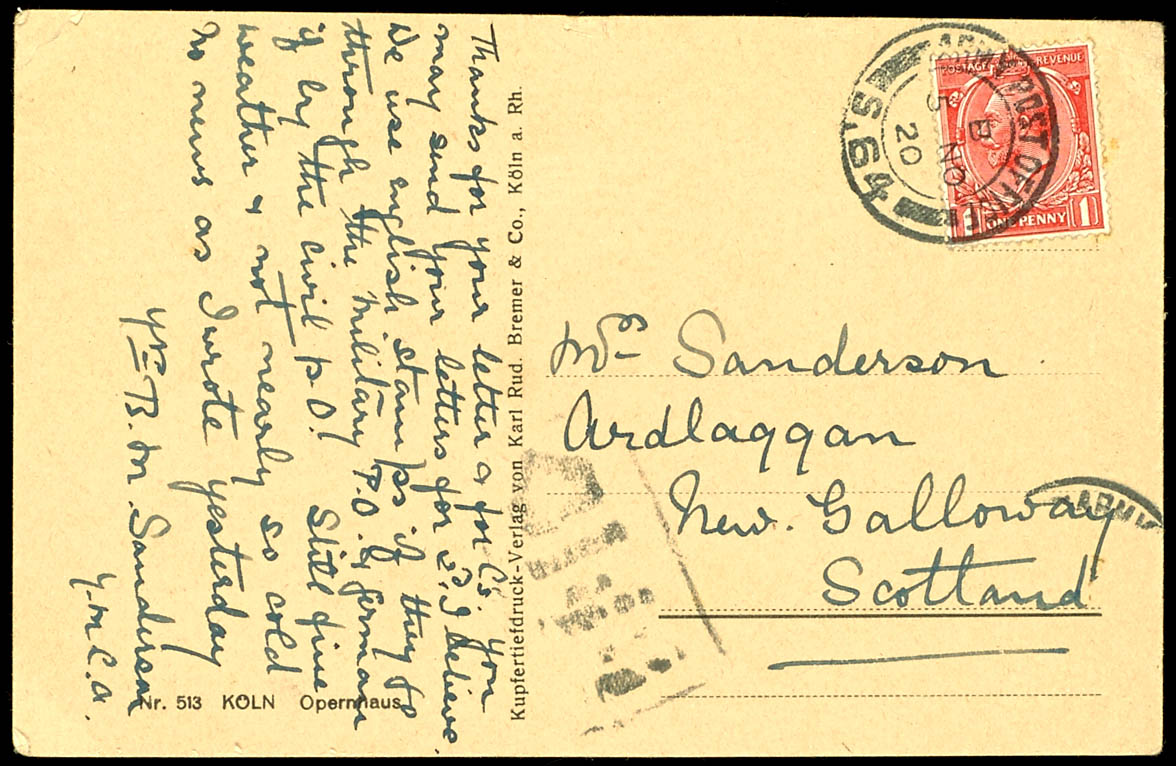 Thanks for your letter & for C's. You
may send your letters for I believe
We use english stamps if they go
through the military P.O. & german
if by the civil p.O! Still fine
weather & not nearly so cold
No news as I wrote yesterday
Yrs B.M. Sanderson
Y.M.C.A.
Kupfertiefdruck-Verlag von Karl Rud. Bremer & Co., Köln a. Rh.
Nr. 513 KÖLN Opernhaus
ARMY POST OFFICE
B
5 NO
20
S.64
POSTAGE REVENUE
1 ONE PENNY 1
Mrs Sanderson
Ardlaggan
New. Galloway
Scotland
ARMY